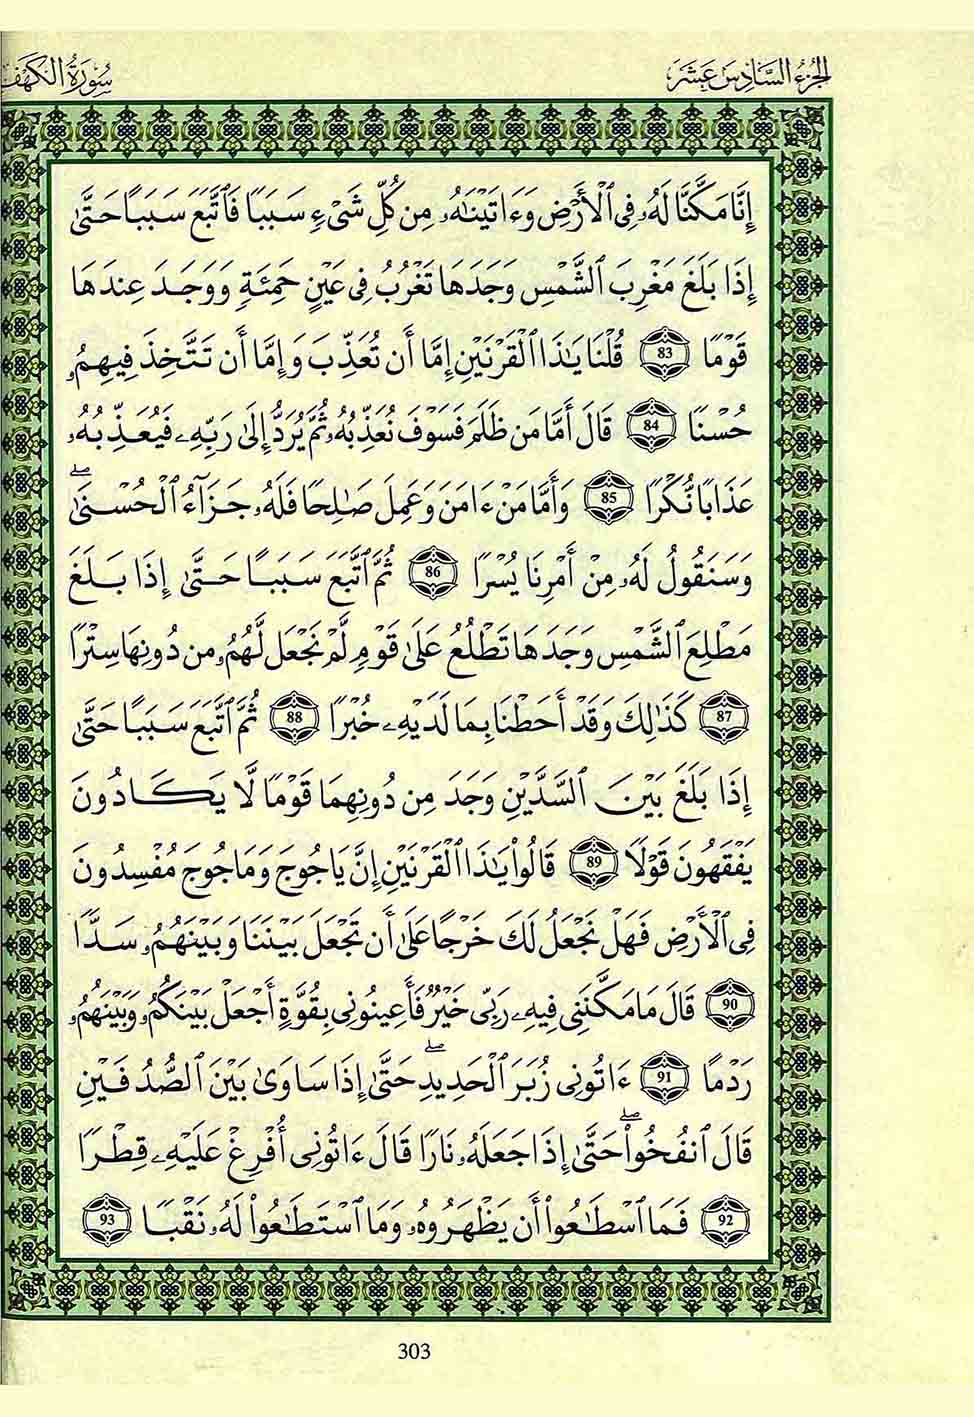 الجزء السادس عشر
سورة الكهف
إِنَّا مَكَّنَّا لَهُۥ فِى ٱلْأَرْضِ وَءَاتَيْنَٰهُۥ مِن كُلِّ شَىْءٍۢ سَبَبًا فَٱتَّبَعَ سَبَبًا حَتَّىٰ
إِذَا بَلَغَ مَغْرِبَ ٱلشَّمْسِ وَجَدَهَا تَغْرُبُ فِى عَيْنٍ حَمِئَةٍ وَوَجَدَ عِندَهَا
قَوْمًا 83 قُلْنَا يَٰذَا ٱلْقَرْنَيْنِ إِمَّا أَن تُعَذِّبَ وَإِمَّا أَن تَتَّخِذَ فِيهِمُۥ
حُسْنًا 84 قَالَ أَمَّا مَن ظَلَمَ فَسَوْفَ نُعَذِّبُهُۥ ثُمَّ يُرَدُّ إِلَىٰ رَبِّهِۦ فَيُعَذِّبُهُۥ
عَذَابًا نُّكْرًا 85 وَأَمَّا مَنْ ءَامَنَ وَعَمِلَ صَٰلِحًا فَلَهُۥ جَزَآءُ ٱلْحُسْنَىٰ ۖ
وَسَنَقُولُ لَهُۥ مِنْ أَمْرِنَا يُسْرًا 86 ثُمَّ ٱتَّبَعَ سَبَبًا حَتَّىٰ إِذَا بَلَغَ
مَطْلِعَ ٱلشَّمْسِ وَجَدَهَا تَطْلُعُ عَلَىٰ قَوْمٍ لَّمْ نَجْعَل لَّهُمُۥ مِن دُونِهَا سِتْرًا
87 كَذَٰلِكَ وَقَدْ أَحَطْنَا بِمَا لَدَيْهِۦ خُبْرًا 88 ثُمَّ ٱتَّبَعَ سَبَبًا حَتَّىٰ
إِذَا بَلَغَ بَيْنَ ٱلسَّدَّيْنِ وَجَدَ مِن دُونِهِمَا قَوْمًا لَّا يَكَادُونَ
يَفْقَهُونَ قَوْلًا 89 قَالُوا۟ يَٰذَا ٱلْقَرْنَيْنِ إِنَّ يَاجُوجَ وَمَاجُوجَ مُفْسِدُونَ
فِى ٱلْأَرْضِ فَهَلْ نَجْعَلُ لَكَ خَرْجًا عَلَىٰ أَن تَجْعَلَ بَيْنَنَا وَبَيْنَهُمُۥ سَدًّا
90 قَالَ مَا مَكَّنَنِى فِيهِۦ رَبِّى خَيْرٌ فَأَعِينُونِى بِقُوَّةٍ أَجْعَلْ بَيْنَكُمُۥ وَبَيْنَهُمُۥ
رَدْمًا 91 ءَاتُونِى زُبَرَ ٱلْحَدِيدِ ۖ حَتَّىٰ إِذَا سَاوَىٰ بَيْنَ ٱلصُّدُفَيْنِ
قَالَ ٱنفُخُوا۟ ۖ حَتَّىٰ إِذَا جَعَلَهُۥ نَارًا قَالَ ءَاتُونِى أُفْرِغْ عَلَيْهِۦ قِطْرًا
92 فَمَا ٱسْطَٰعُوا۟ أَن يَظْهَرُوهُۥ وَمَا ٱسْتَطَٰعُوا۟ لَهُۥ نَقْبًا 93
303